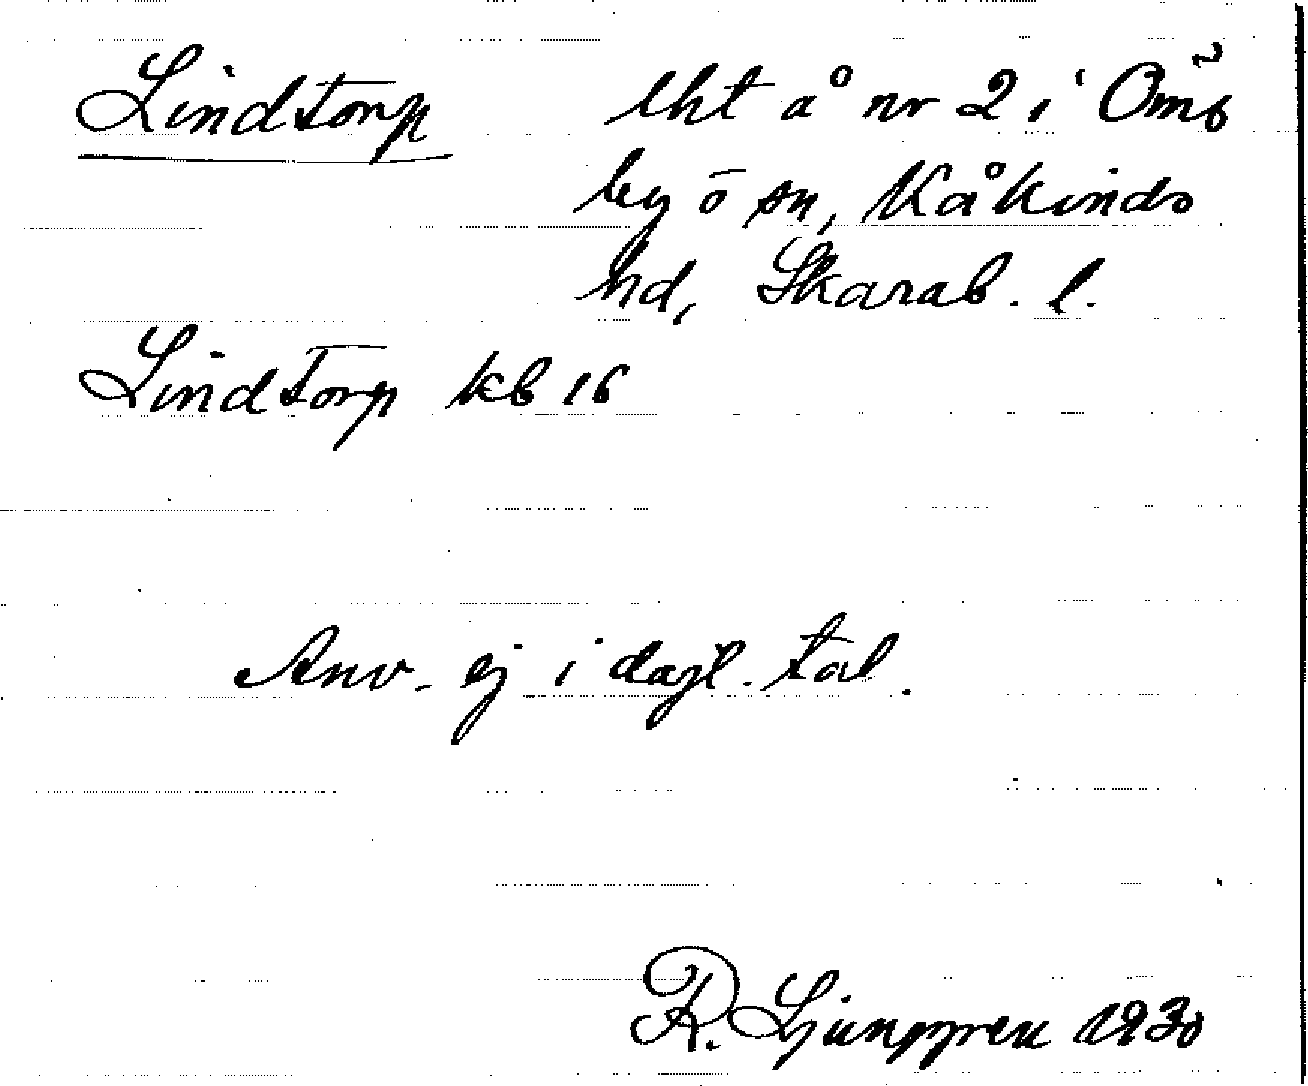 Lindtorp lht å nr 2 i Omb
by o sn, Kåkinds
hd, Skarab. l.
Lindtorp kb 16
Anv. ej i dagl. tal.
R. Ljunggren 1930